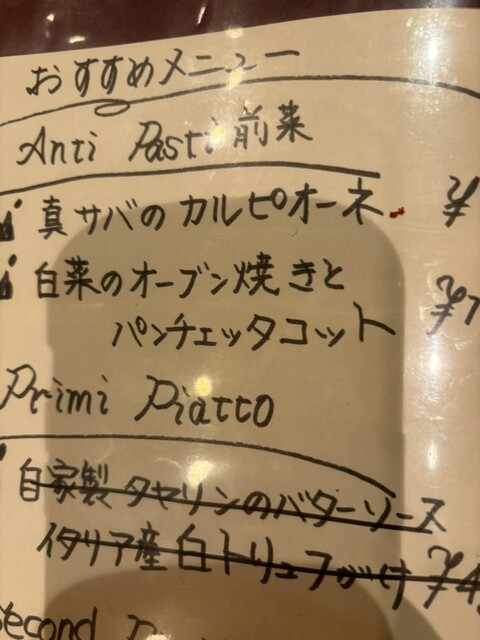 おすすめメニュー
Anti Pasti 前菜
真サバのカルピオーネ ¥
白菜のオーブン焼きと
パンチェッタコット ¥7
Primi Piatto
自家製タヤリンのバターソース
イタリア産白トリュフがけ ¥4
Second